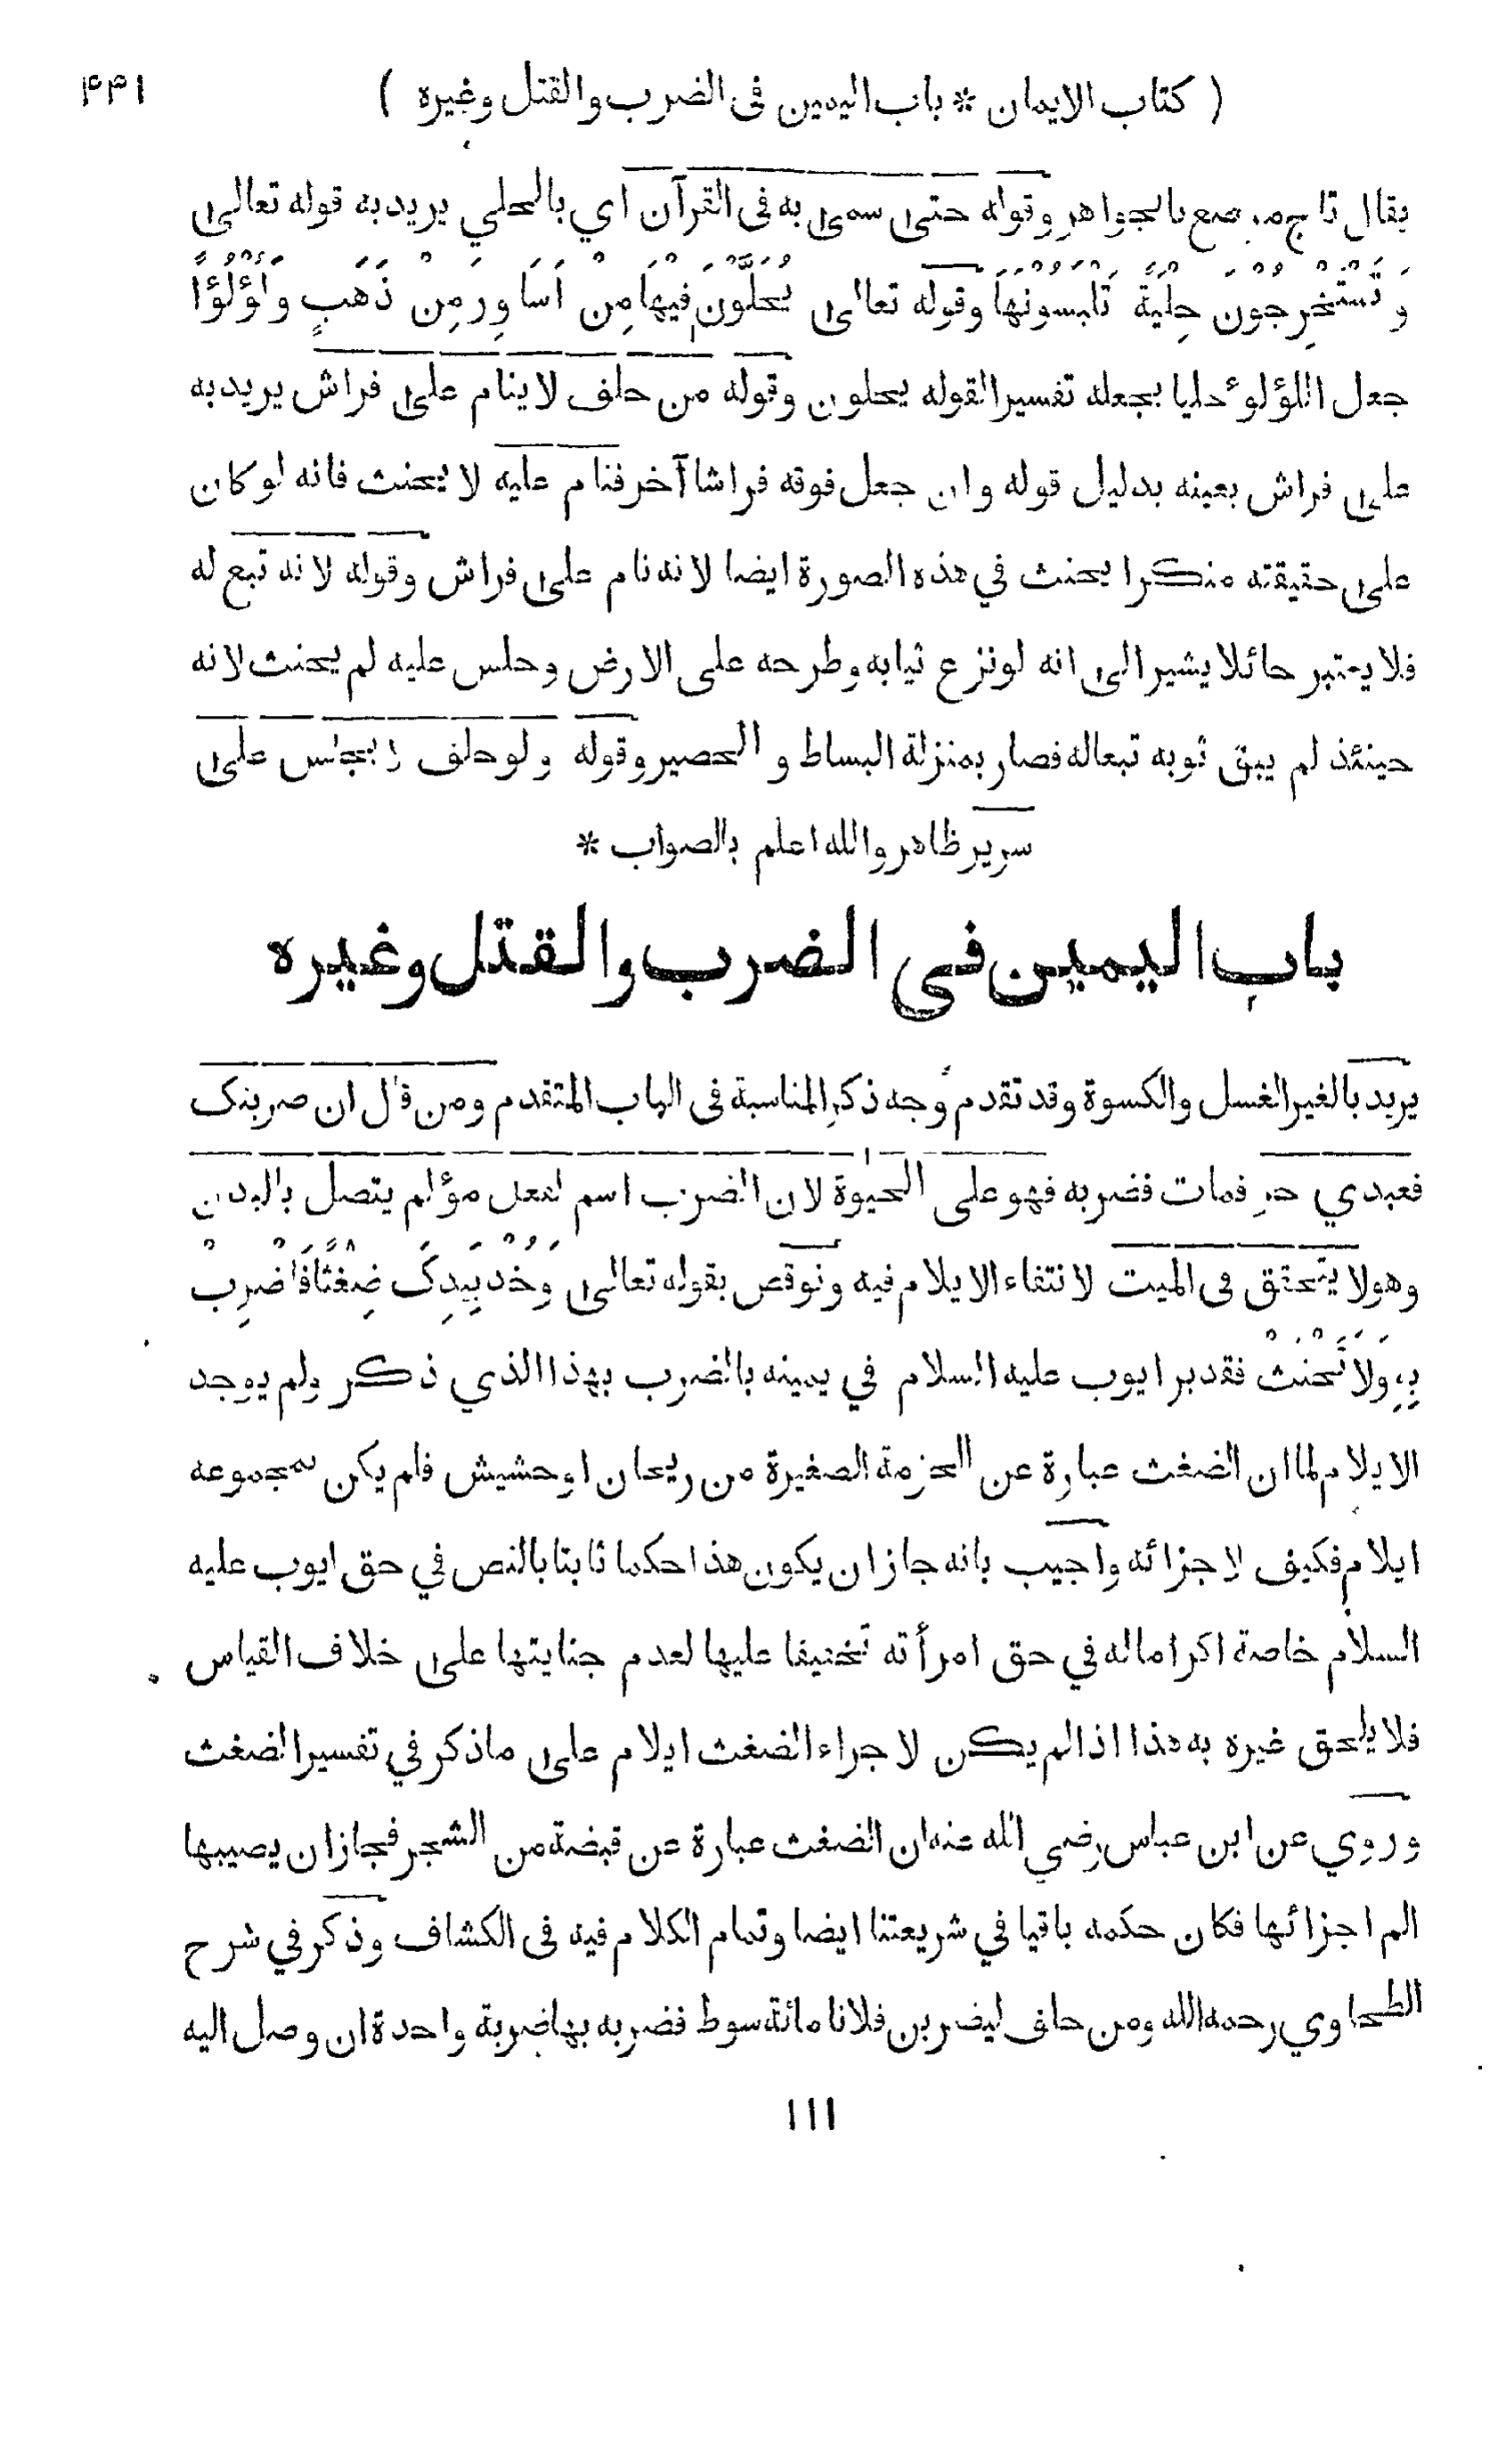 ( كتاب الايمان * باب اليمين فى الضرب والقتل وغيره ) ۴۴۱
يقال تاج مرصع بالجواهر وقوله حتى سمى به فى القرآن اي بالحلي يريد به قوله تعالى
وَتَسْتَخْرِجُوْنَ حِلْيَةً تَلْبَسُوْنَهَا وقوله تعالى يُحَلَّوْنَ فِيْهَا مِنْ اَسَاوِرَ مِنْ ذَهَبٍ وَلُؤْلُؤًا
جعل اللؤلوء حليا بجعله تفسيرا لقوله يحلون وقوله من حلف لا ينام على فراش يريد به
على فراش بعينه بدليل قوله وان جعل فوقه فراشا آخر فنام عليه لا يحنث فانه لو كان
على حقيقته منكرا يحنث في هذه الصورة ايضا لانه نام على فراش وقوله لانه تبع له
فلا يعتبر حائلا يشير الى انه لو نزع ثيابه وطرحه على الارض وجلس عليه لم يحنث لانه
حينئذ لم يبق ثوبه تبعا له فصار بمنزلة البساط و الحصير وقوله ولو حلف لا يجلس على
سرير ظاهر والله اعلم بالصواب *
باب اليمين فى الضرب والقتل وغيره
يريد بالغير الغسل والكسوة وقد تقدم وجه ذكر المناسبة فى الباب المتقدم ومن قال ان ضربتك
فعبدي حر فمات فضربه فهو على الحيوة لان الضرب اسم لفعل مؤلم يتصل بالبدن
وهو لا يتحقق فى الميت لانتفاء الايلام فيه ونوقض بقوله تعالى وَخُذْ بِيَدِكَ ضِغْثًا فَاضْرِبْ
بِهٖ وَلَا تَحْنَثْ فقد بر ايوب عليه السلام في يمينه بالضرب بهذا الذي ذكر ولم يوجد
الايلام لما ان الضغث عبارة عن الحزمة الصغيرة من ريحان او حشيش فلم يكن لمجموعه
ايلام فكيف لاجزائه واجيب بانه جاز ان يكون هذا حكما ثابتا بالنص في حق ايوب عليه
السلام خاصة اكراما له في حق امرأته تخفيفا عليها لعدم جنايتها على خلاف القياس
فلا يلحق غيره به هذا اذا لم يكن لاجزاء الضغث ايلام على ما ذكر في تفسير الضغث
وروي عن ابن عباس رضي الله عنه ان الضغث عبارة عن قبضة من الشجر فجاز ان يصيبها
الم اجزائها فكان حكمه باقيا في شريعتنا ايضا وتمام الكلام فيه فى الكشاف وذكر في شرح
الطحاوي رحمه الله ومن حلف ليضربن فلانا مائة سوط فضربه بها ضربة واحدة ان وصل اليه
ااا